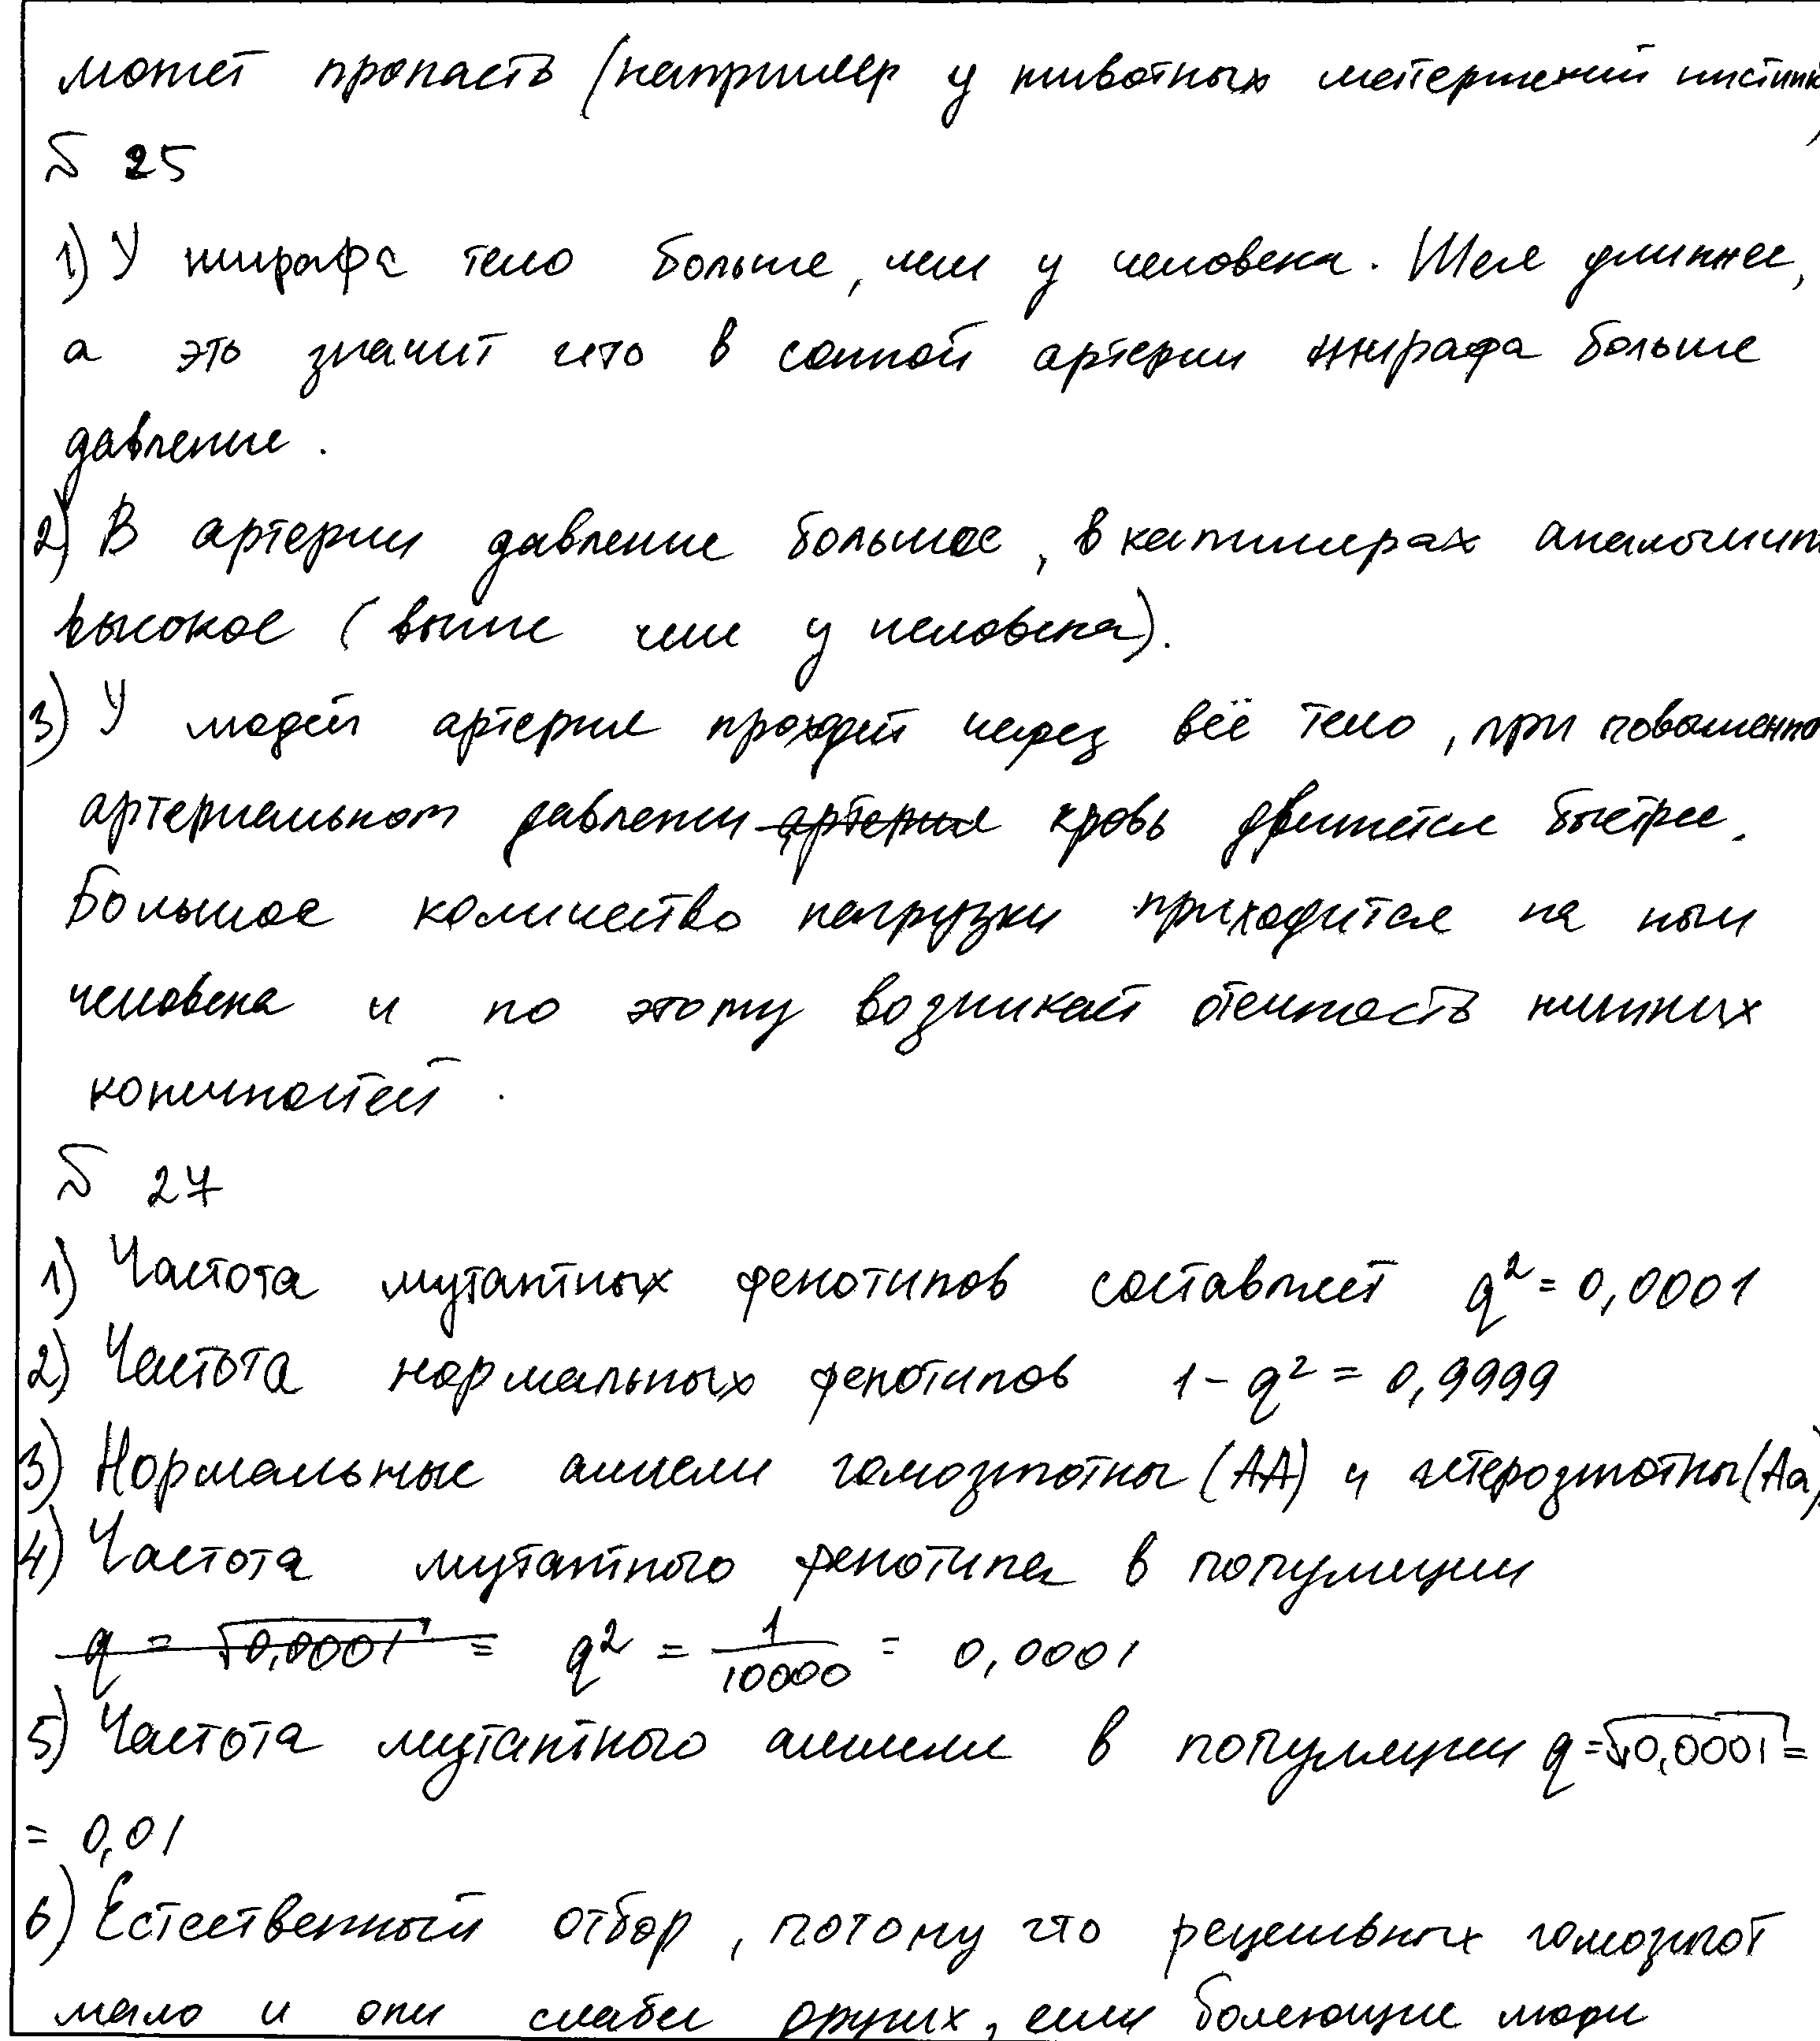 может пропасть (например у животных материнский инстинк
№ 25
1) У жирафа тело больше, чем у человека. Шея длиннее,
а это значит что в сонной артерии жирафа больше
давление.
2) В артерии давление большое, в капилярах аналогичн
высокое (выше чем у человека).
3) У людей артерия проходит через всё тело, при повышенно
артериальном давлении артерия кровь движется быстрее.
Большое количество нагрузки приходится на ноги
человека и по этому возникает отечность нижних
конечностей.
№ 27
1) Частота мутантных фенотипов составляет q² = 0,0001
2) Частота нормальных фенотипов 1 - q² = 0,9999
3) Нормальные аллели гомозиготны (АА) и гетерозиготны (Аа)
4) Частота мутантного фенотипа в популяции
q = √0,0001 = q² = 1/10000 = 0,0001
5) Частота мутантного аллели в популяции q = √0,0001 =
= 0,01
6) Естественный отбор, потому что рецесивных гомозигот
мало и они слабее других, если болеющие люди